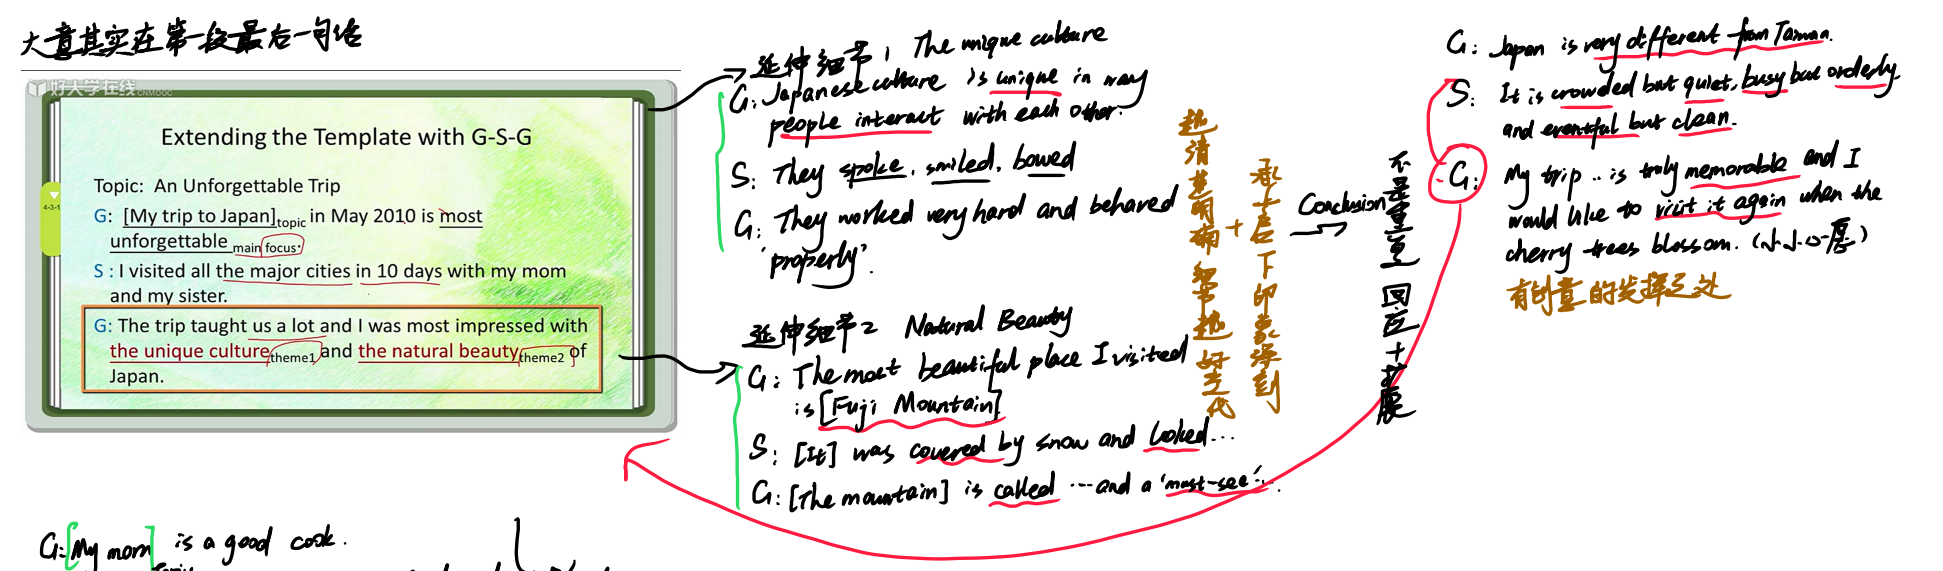 大意其实在第一段最后一句话
好大学在线 CNMOOC
Extending the Template with G-S-G
4-3-1
Topic: An Unforgettable Trip
G: [My trip to Japan]topic in May 2010 is most
unforgettable main focus.
S : I visited all the major cities in 10 days with my mom
and my sister.
G: The trip taught us a lot and I was most impressed with
the unique culture theme1, and the natural beauty theme2 of
Japan.
延伸细节1 The unique culture
G: Japanese culture is unique in way
people interact with each other.
S: They spoke, smiled, bowed
G: They worked very hard and behaved
'properly'.
延伸细节2 Natural Beauty
G: The most beautiful place I visited
is [Fuji Mountain]
S: [It] was covered by snow and looked...
G: [The mountain] is called ... and a 'must-see'...
越清楚明确 细节越好交代
+
承上启下印象深刻
Conclusion
不是重复 回应+扩展
G: Japan is very different from Taiwan.
S: It is crowded but quiet, busy but orderly
and eventful but clean.
G: My trip .. is truly memorable and I
would like to visit it again when the
cherry trees blossom. (小小心愿)
有创意的发挥之处
G: [My mom] is a good cook.